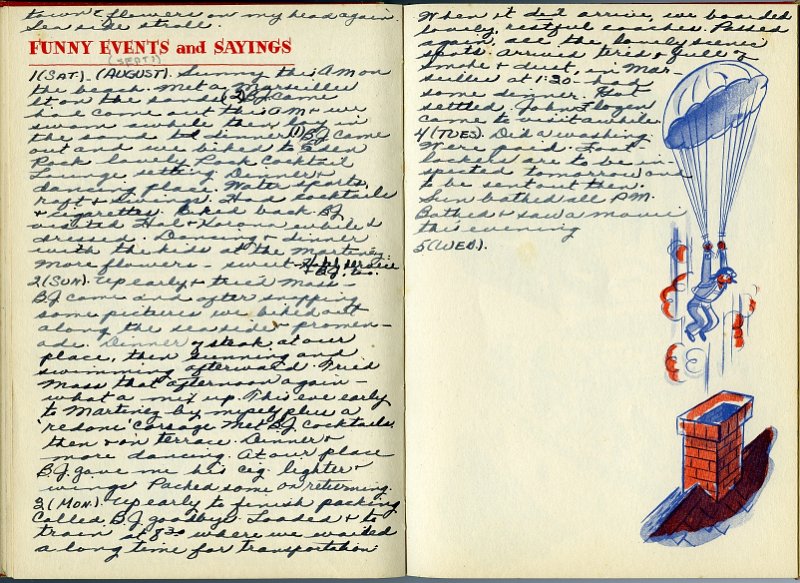 town & flowers on my head again
sea side stroll.
FUNNY EVENTS and SAYINGS
(SEPT?)
1(SAT). (AUGUST). Sunny this A.M on
the beach. Met a Marseilles
Lt on the sands (2) B.J. came
had come out this A.M we
swam awhile then lay in
the sand til dinner. (1) B.J came
out and we biked to Eden
Rock lovely Rock Cocktail
Lounge setting Dinner &
dancing place. Water sports,
raft & swings. Had cocktails
& cigarettes. Biked back B.J.
visited Hal & while I
dressed. Dancing & dinner
with the kids at the Martinez.
More flowers – sweet
& B.J. too.
2(SUN). Up early & tried Mass –
B.J came and after snapping
some pictures we biked out
along the seaside promen-
ade. Dinner of steak at our
place, then sunning and
swimming afterward. Tried
Mass that afternoon again –
what a mix up. This eve early
to Martinez by myself plus a
'redone' corsage. Met B.J. cocktails
then & on terrace. Dinner &
more dancing. At our place
B.J. gave me his cig. lighter &
wings. Packed some on returning.
3(MON). Up early to finish packing
Called B.J goodbye. Loaded & to
train at 8:30 where we waited
a long time for transportation
When it did arrive, we boarded
lovely, restful coaches. Passed
again, all the lovely scenic
spots. Arrived tired & full of
smoke & dust, in Mar-
seilles at 1:30 – had
some dinner. Got
settled. John Flogen
came to visit awhile.
4(TUES). Did a washing
Were paid. Foot
lockers are to be in-
spected tomorrow and
to be sent out then.
Sun bathed all P.M.
Bathed & saw a movie
this evening
5(WED).